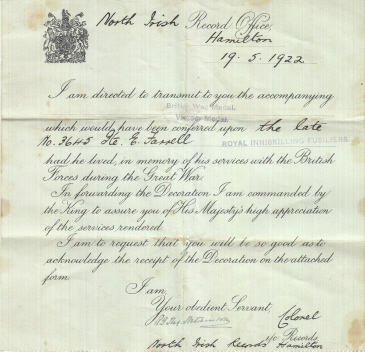 North Irish Record Office,
Hamilton
19. 5. 1922
I am directed to transmit to you the accompanying
British War Medal.
Victory Medal.
which would have been conferred upon the late
No. 3645 Pte. E. Farrell ROYAL INNISKILLING FUSILIERS.
had he lived, in memory of his services with the British
Forces during the Great War.
In forwarding the Decoration I am commanded by
the King to assure you of His Majesty's high appreciation
of the services rendered.
I am to request that you will be so good as to
acknowledge the receipt of the Decoration on the attached
form.
I am,
Your obedient Servant,
Colonel
i/c Records
North Irish Records Hamilton